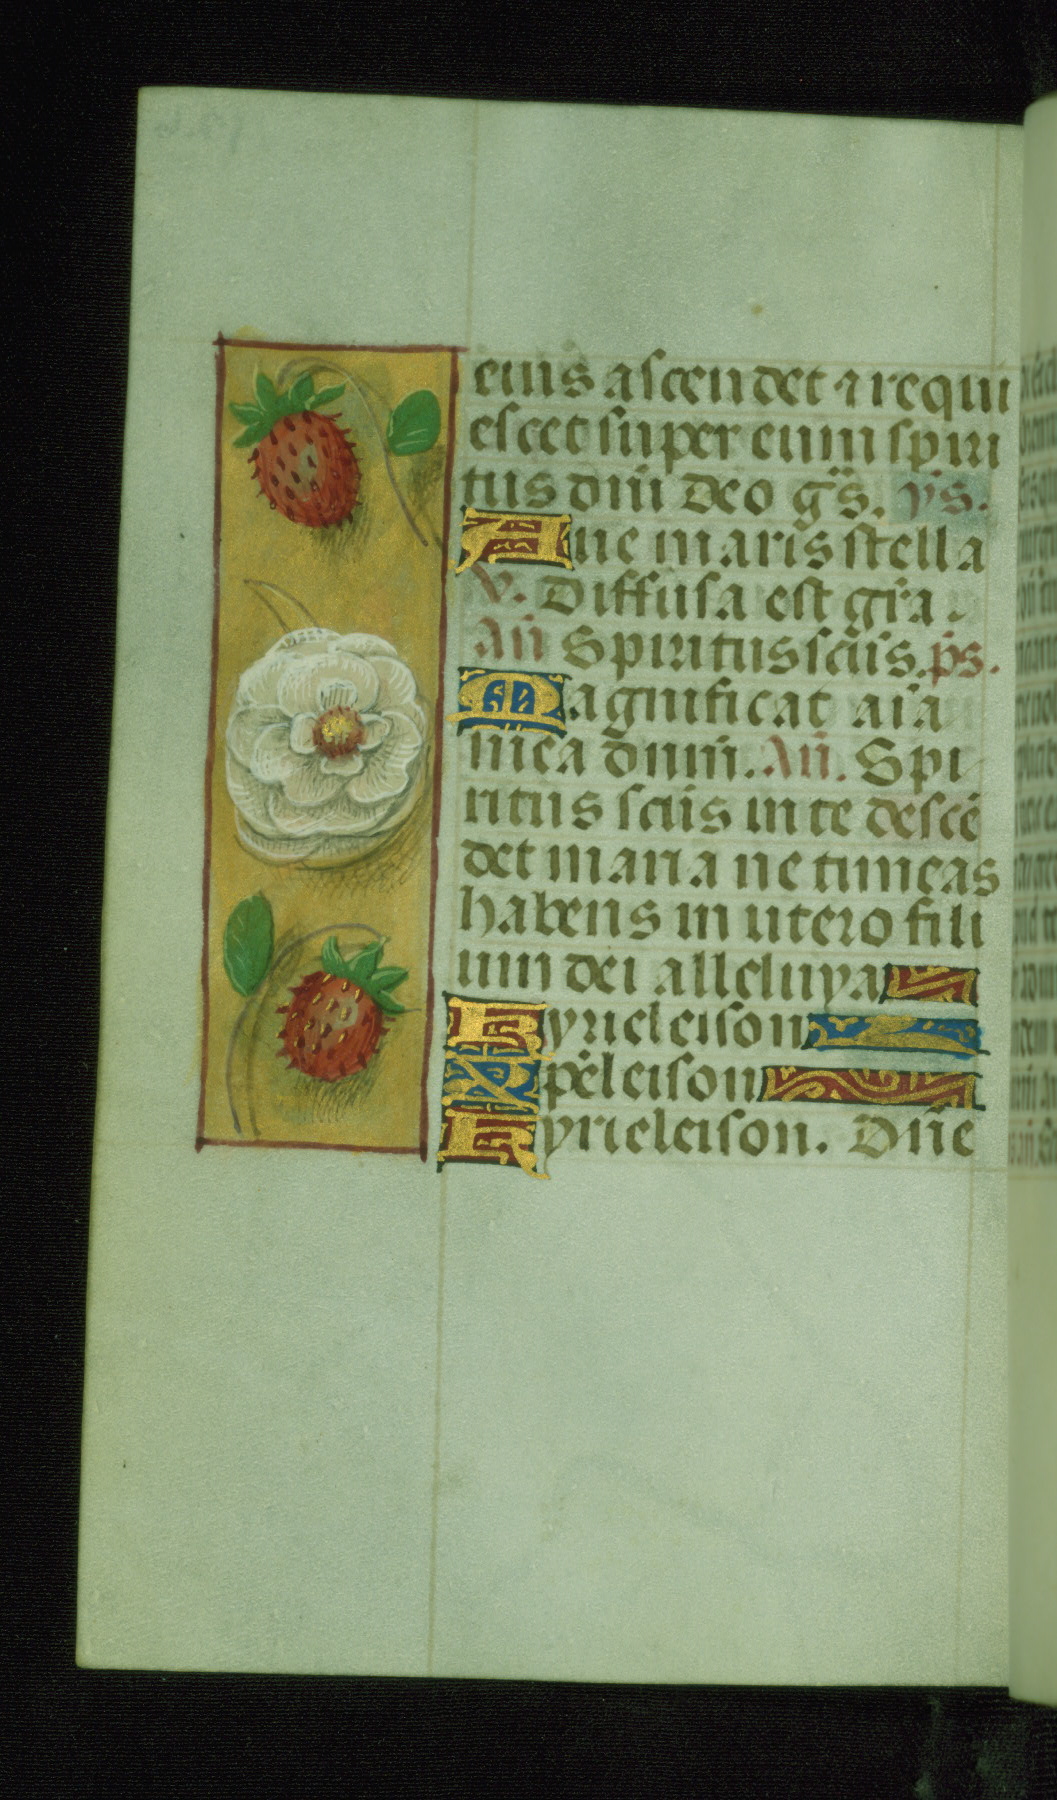 eius ascendet ⁊ requi
escet super eum spiri
tus dñi Deo gr̃s. ỹs.
Aue maris stella
V. Diffusa est gr̃a.
Añ Spiritus sc̃us. p̃s.
Magnificat aĩa
mea dnm̃. Añ. Spi
ritus sc̃us in te descẽ
det maria ne timeas
habens in utero fili
um dei alleluya
Kyrieleison
Xp̃eleison
Kyrieleison. Dñe